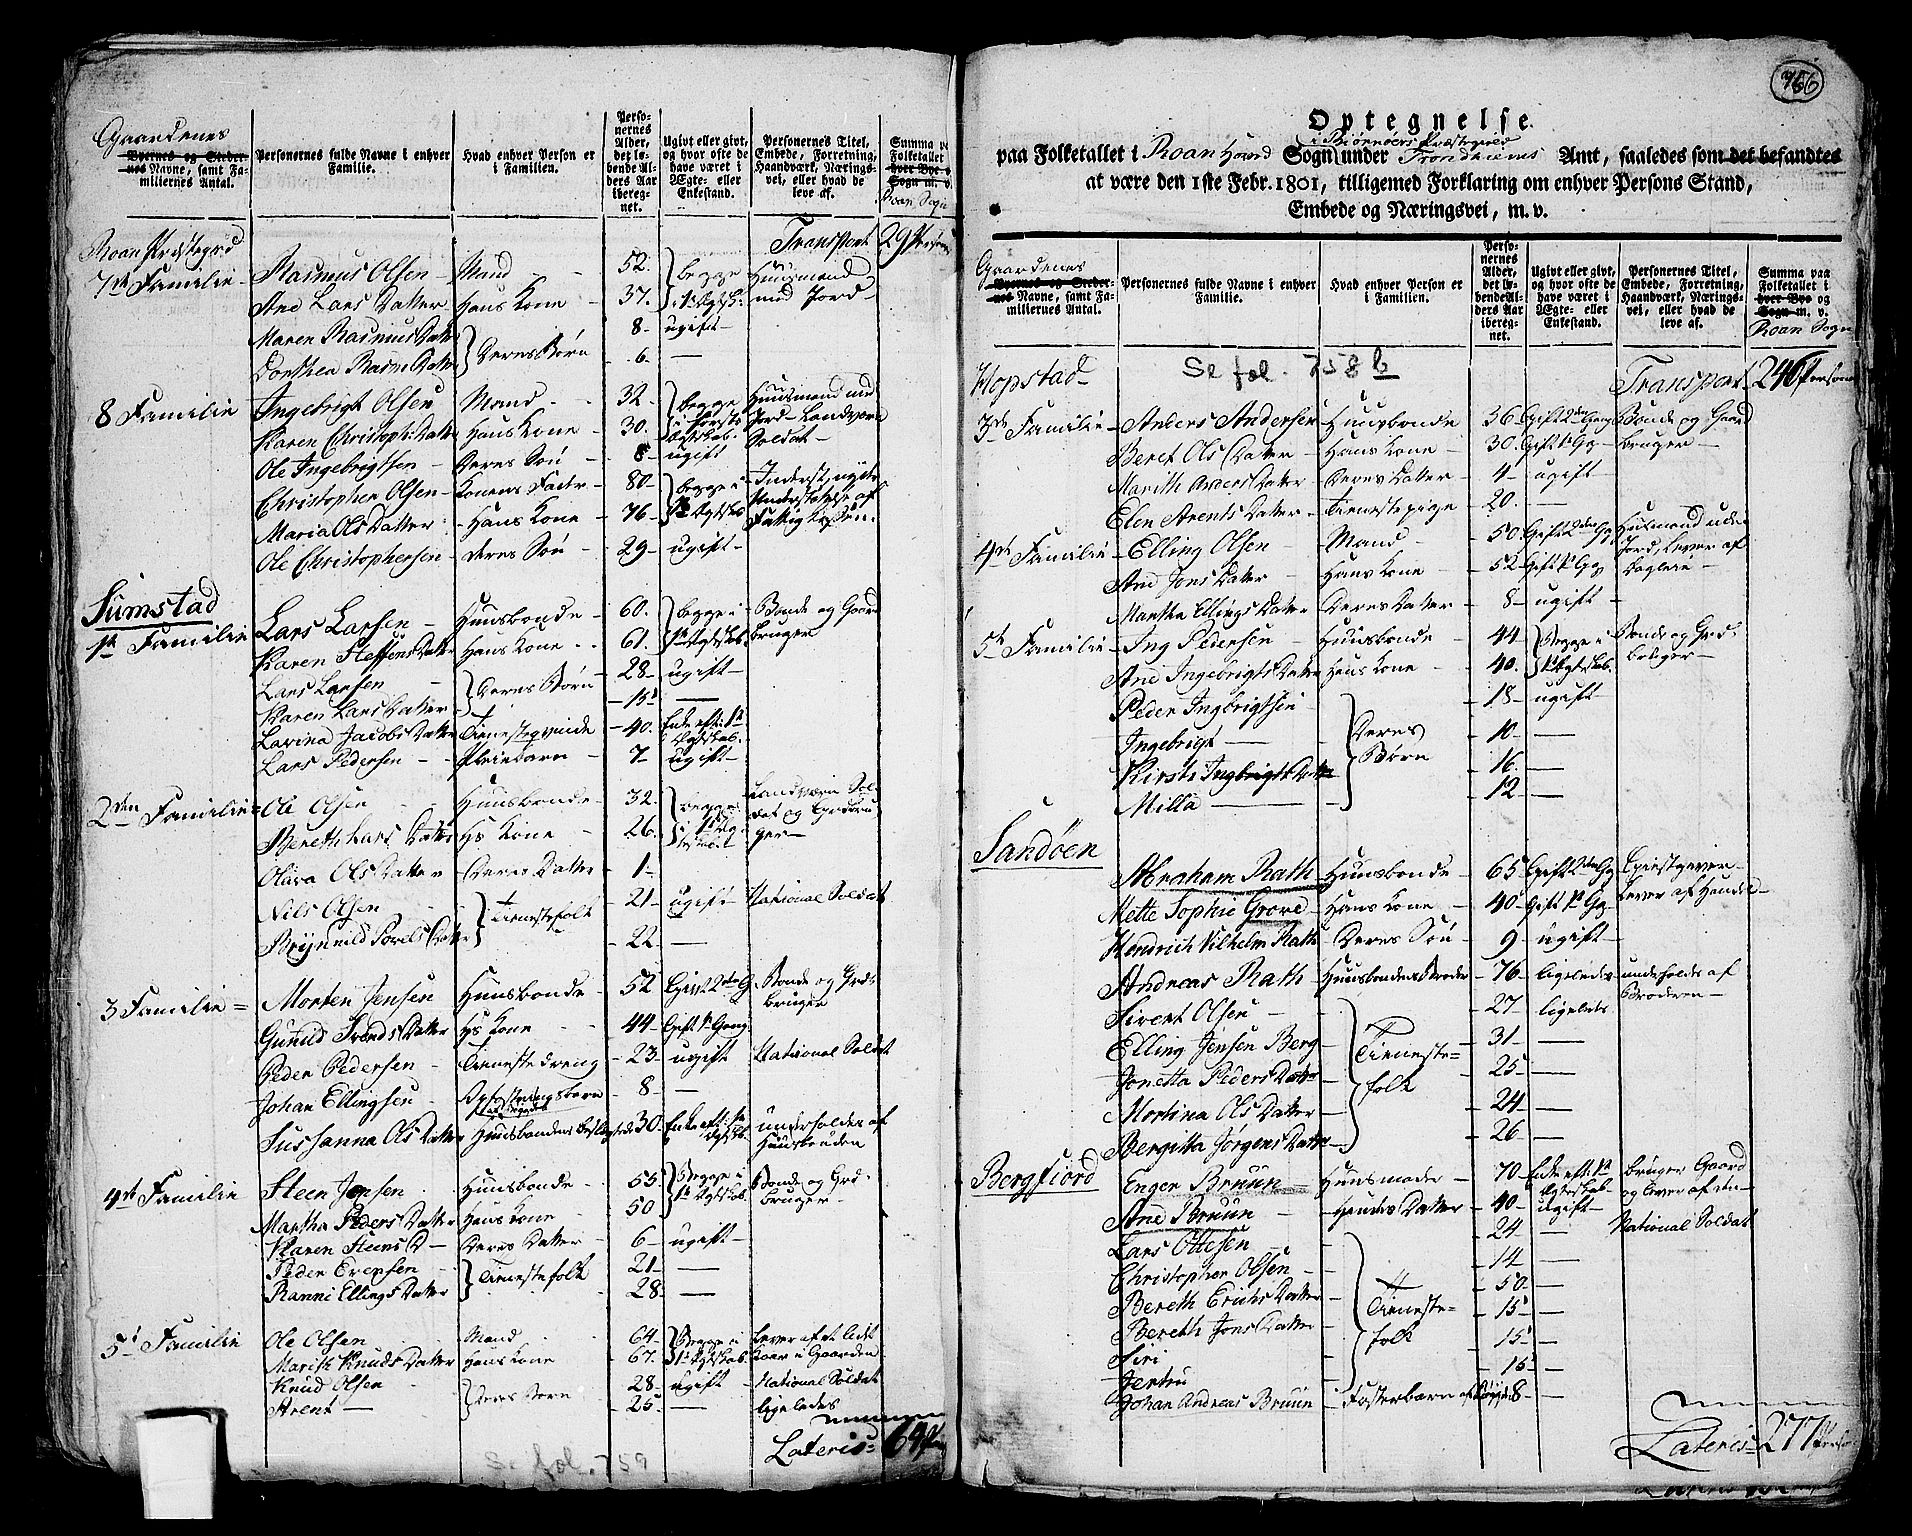 Gaardenes
Byernes og Stedernes Navne, samt Familiernes Antal.
Personernes fulde Navne i enhver Familie.
Hvad enhver Person er i Familien.
Personernes Alder, det løbende Alders Aar iberegnet.
Ugivt eller givt, og hvor ofte de have været i Ægte- eller Enkestand.
Personernes Titel, Embede, Forretning, Haandværk, Næringsvei, eller hvad de leve af.
Summa paa Folketallet i hver Bye og Sogn m. v.
Roan Sogn
Transport 29 Personer
Roan Præstegrd
7de Familie Rasmus Olsen Mand 52. begge i 1te Egtesk. Huusmand med Jord
Ane Lars Datter Hans Kone 37.
Maren Rasmus Datter Deres Børn 8 ugift
Dorthea Rasm: Datter 6.
8 Familie Ingebrigt Olsen Mand 32. begge i første Egteskab. Huusmand med Jord Landværn Soldat
Karen Christoph: Datter Hans Kone 30.
Ole Ingebrigtsen Deres Søn 8 ugift
Christopher Olsen Konens Fader 80 begge i 1te Egteskab
Maria Ols Datter Hans Kone 76
Ole Christophersen deres Søn 29 ugift
Sumstad
1te Familie Lars Larsen Huusbonde 60. begge i 1te Egteskab. Bonde og Gaardbruger
Karen Steffens Datter Hans Kone 61.
Lars Larsen Deres Børn 28 ugift
Karen Lars Datter 15
Lavina Jacobs Datter Tieneste qvinde 40. Enke eft: 1te Egteskab.
Lars Pedersen Pleiebarn 7 ugift
2den Familie Ole Olsen Huusbonde 32. begge i 1te Egteskab Landværn Soldat og Grdbruger
Bereth Lars Datter Hs Kone 26.
Olava Ols Datter Deres Datter 1
Nils Olsen Tienestefolk 21 ugift National Soldat
22
3 Familie Morten Jensen Huusbonde 52 Gift 2den G. Bonde og Grdbruger
Gunild Tronds Datter Hs Kone 44 Gift 1te Gang
Peder Pedersen Tieneste dreng 23 ugift National Soldat
Johan Ellingsen Opfostringsbarn 8
Sussanna Ols Datter Huusbondens Beslegtede 30. Enke eft: 1te Egtesk. underholdes af Huusbonden
4de Familie Steen Jensen Huusbonde 55 Begge i 1te Egteskab. Bonde og Grdbruger
Martha Peders Datter Hans Kone 50
Karen Steens D Deres Datter 6 ugift
Peder Evensen Tienestefolk 21
Ranni Ellings Datter 28
5te Familie Ole Olsen Mand 64 Begge i 1te Egteskab.
Marith Knuds Datter Hans Kone 67.
Knud Olsen Deres Børn 28 ugift National Soldat
Arent 25 ligeledes
Lateris 64
Se fol. 759
766
Optegnelse
paa Folketallet i Roan Hoved Sogn i Biørnøers Præstegield under Trondhiems Amt, saaledes som det befandtes
at være den 1ste Febr. 1801, tilligemed Forklaring om enhver Persons Stand,
Embede og Næringsvei, m. v.
Gaardenes
Byernes og Stedernes Navne, samt Familiernes Antal.
Personernes fulde Navne i enhver Familie.
Hvad enhver Person er i Familien.
Personernes Alder, det løbende Alders Aar iberegnet.
Ugivt eller givt, og hvor ofte de have været i Ægte- eller Enkestand.
Personernes Titel, Embede, Forretning, Haandværk, Næringsvei, eller hvad de leve af.
Summa paa Folketallet i hver Bye og Sogn m. v.
Roan Sogn
Hopstad Se fol. 758 b Transport 246 Personer
3de Familie Anders Andersen Huusbonde 36 Gift 2den Gang Bonde og Gaardbruger
Beret Ols Datter Hans Kone 30 Gift 1te Gg
Marith Anders Datter Deres Datter 4 ugift
Elen Arents Datter Tienestepige 20.
4de Familie Elling Olsen Mand 50 Gift 2den Gg Husmand uden Jord, lever af Dagleie
Ane Jons Datter Hans Kone 52 Gift 1te Gg
Martha Ellings Datter Deres Datter 8 ugift
5te Familie Ing Pedersen Huusbonde 44 Begge i 1te Egteskab. Bonde og Grdbruger
Ane Ingebrigts Datter Hans Kone 40.
Peder Ingbrigtsen Deres Børn 18 ugift
Ingebrigt 10
Kirsti Ingbrigts Datter 16
Milla 12
Sandøen
Abraham Rath Huusbonde 65 Gift 2den Gg Giestgiver lever af Handel
Mette Sophie Grove Hans Kone 40 Gift 1te Gg
Hendrich Vilhelm Rath Deres Søn 9 ugift
Andreas Rath Huusbondens Broder 76 ligeledes underholdes af Broderen
Sivert Olsen Tienestefolk 27 ligeledes
Elling Jensen Berg 31
Jonetta Peders Datter 25
Mortina Ols Datter 24
Bergitta Jørgens Datter 26
Bergfiord Enger Bruun Huusmoder 70 Enke eft: 1te Egteskab bruger Gaard og lever af den
Ane Bruun Hendes Datter 40 ugift
Lars Ottesen Tienestefolk 24 National Soldat
Christopher Olsen 14
Bereth Erichs Datter 50
Bereth Jons Datter 15
Siri 15
Jertru 15
Johan Andreas Bruun Fosterbarn 8
Lateris 277 Personer